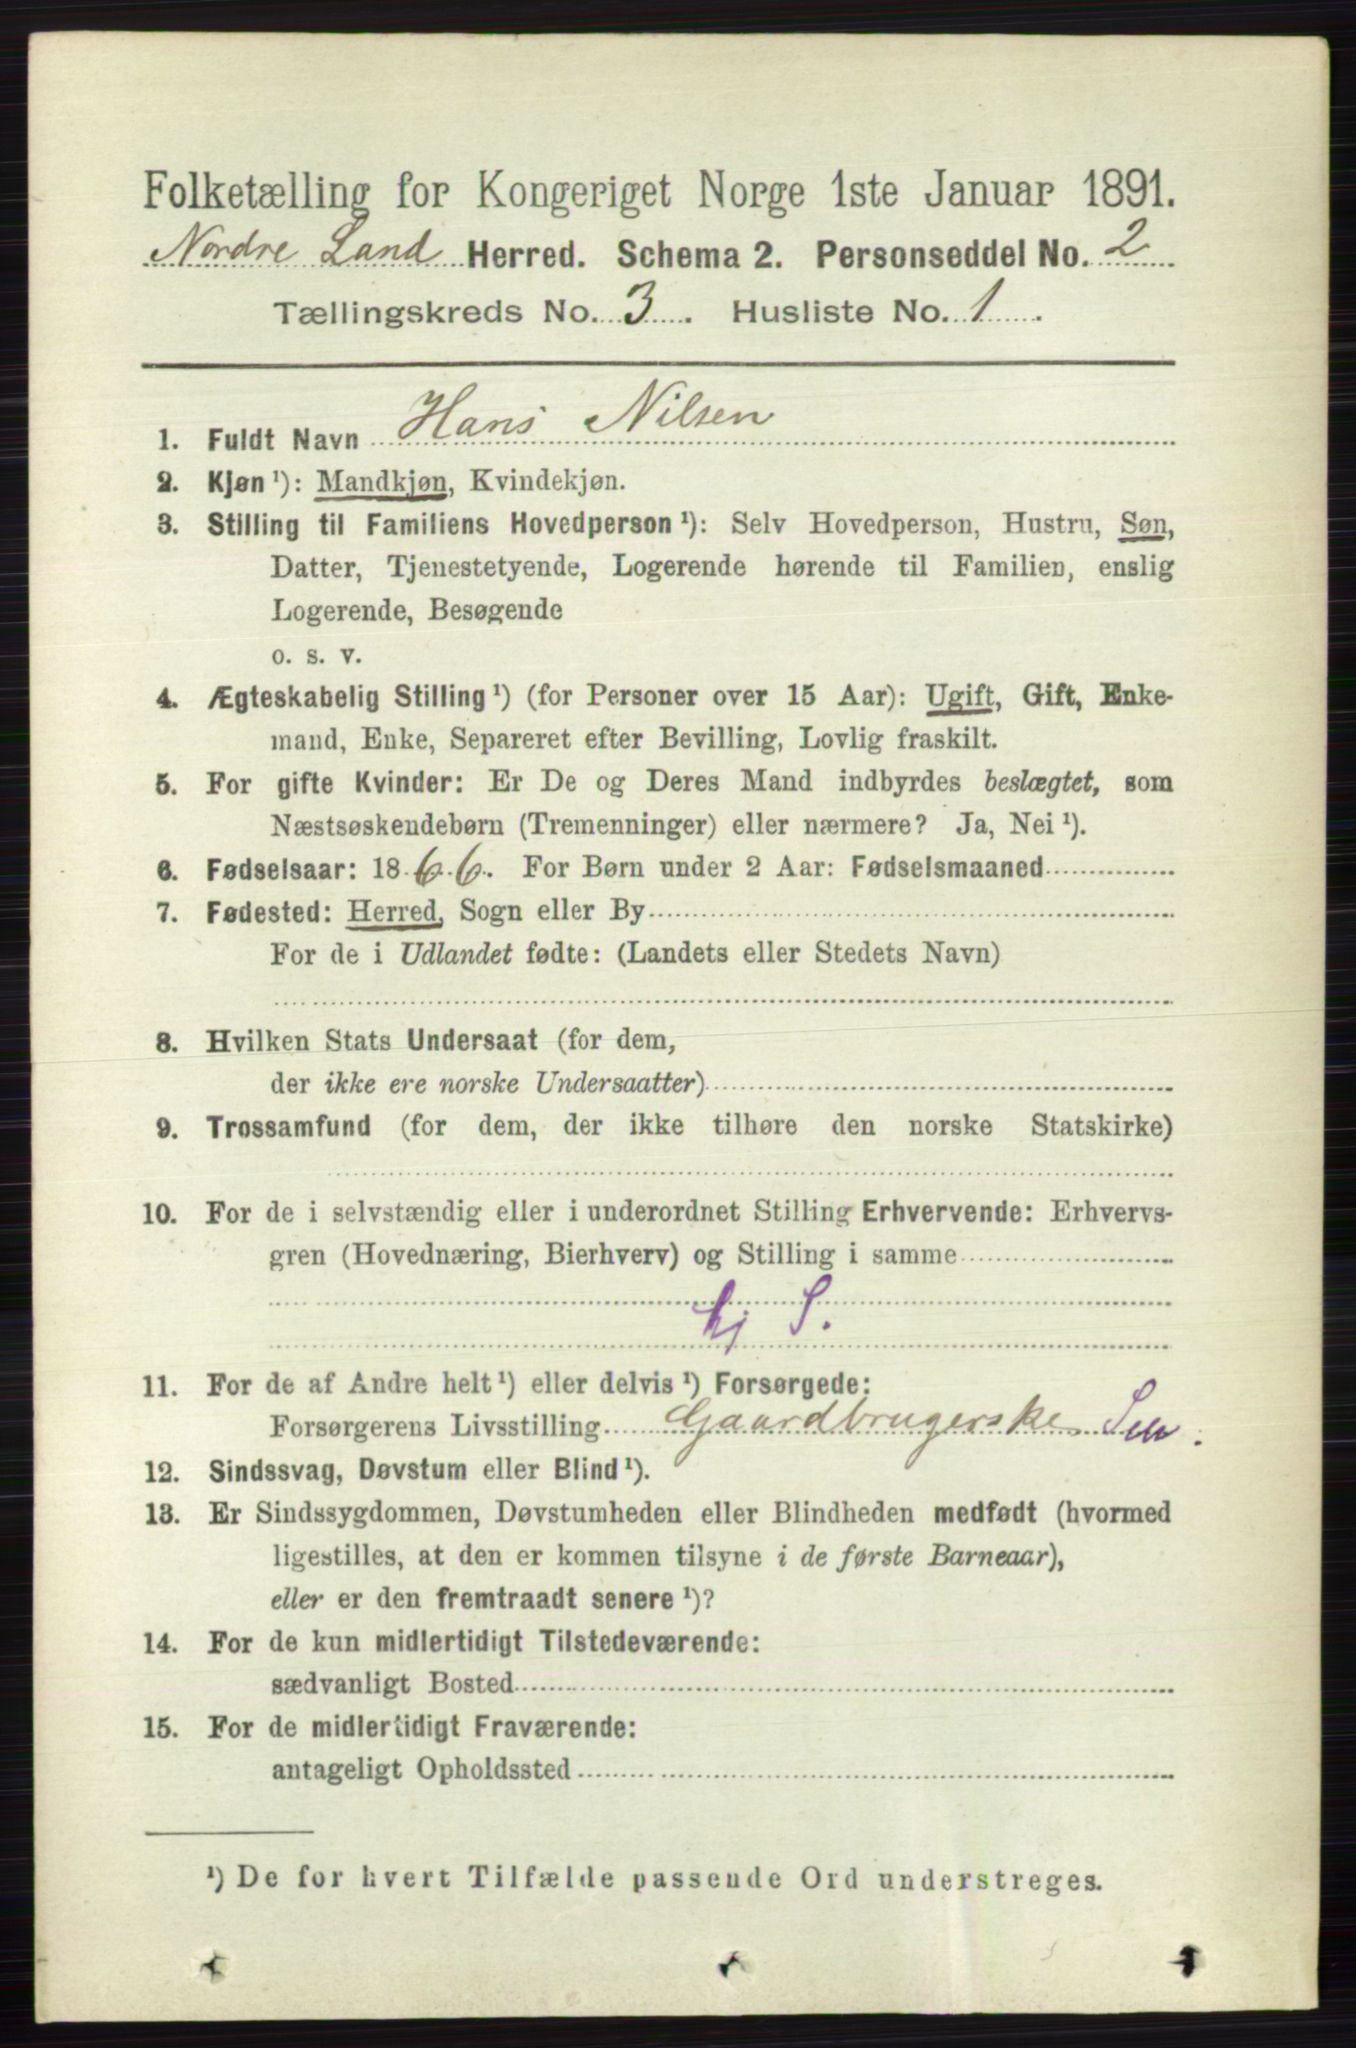 Folketælling for Kongeriget Norge 1ste Januar 1891.
Nordre Land Herred. Schema 2. Personseddel No. 2
Tællingskreds No. 3. Husliste No. 1.
1. Fuldt Navn Hans Nilsen
2. Kjøn ¹): Mandkjøn, Kvindekjøn.
3. Stilling til Familiens Hovedperson ¹): Selv Hovedperson, Hustru, Søn,
Datter, Tjenestetyende, Logerende hørende til Familien, enslig
Logerende, Besøgende
o. s. v.
4. Ægteskabelig Stilling ¹) (for Personer over 15 Aar): Ugift, Gift, Enke-
mand, Enke, Separeret efter Bevilling, Lovlig fraskilt.
5. For gifte Kvinder: Er De og Deres Mand indbyrdes beslægtet, som
Næstsøskendebørn (Tremenninger) eller nærmere? Ja, Nei ¹).
6. Fødselsaar: 1866. For Børn under 2 Aar: Fødselsmaaned
7. Fødested: Herred, Sogn eller By
For de i Udlandet fødte: (Landets eller Stedets Navn)
8. Hvilken Stats Undersaat (for dem,
der ikke ere norske Undersaatter)
9. Trossamfund (for dem, der ikke tilhøre den norske Statskirke)
10. For de i selvstændig eller i underordnet Stilling Erhvervende: Erhvervs-
gren (Hovednæring, Bierhverv) og Stilling i samme
S.
11. For de af Andre helt ¹) eller delvis ¹) Forsørgede:
Forsørgerens Livsstilling Gaardbrugerske
12. Sindssvag, Døvstum eller Blind ¹).
13. Er Sindssygdommen, Døvstumheden eller Blindheden medfødt (hvormed
ligestilles, at den er kommen tilsyne i de første Barneaar),
eller er den fremtraadt senere ¹)?
14. For de kun midlertidigt Tilstedeværende:
sædvanligt Bosted
15. For de midlertidigt Fraværende:
antageligt Opholdssted
¹) De for hvert Tilfælde passende Ord understreges.